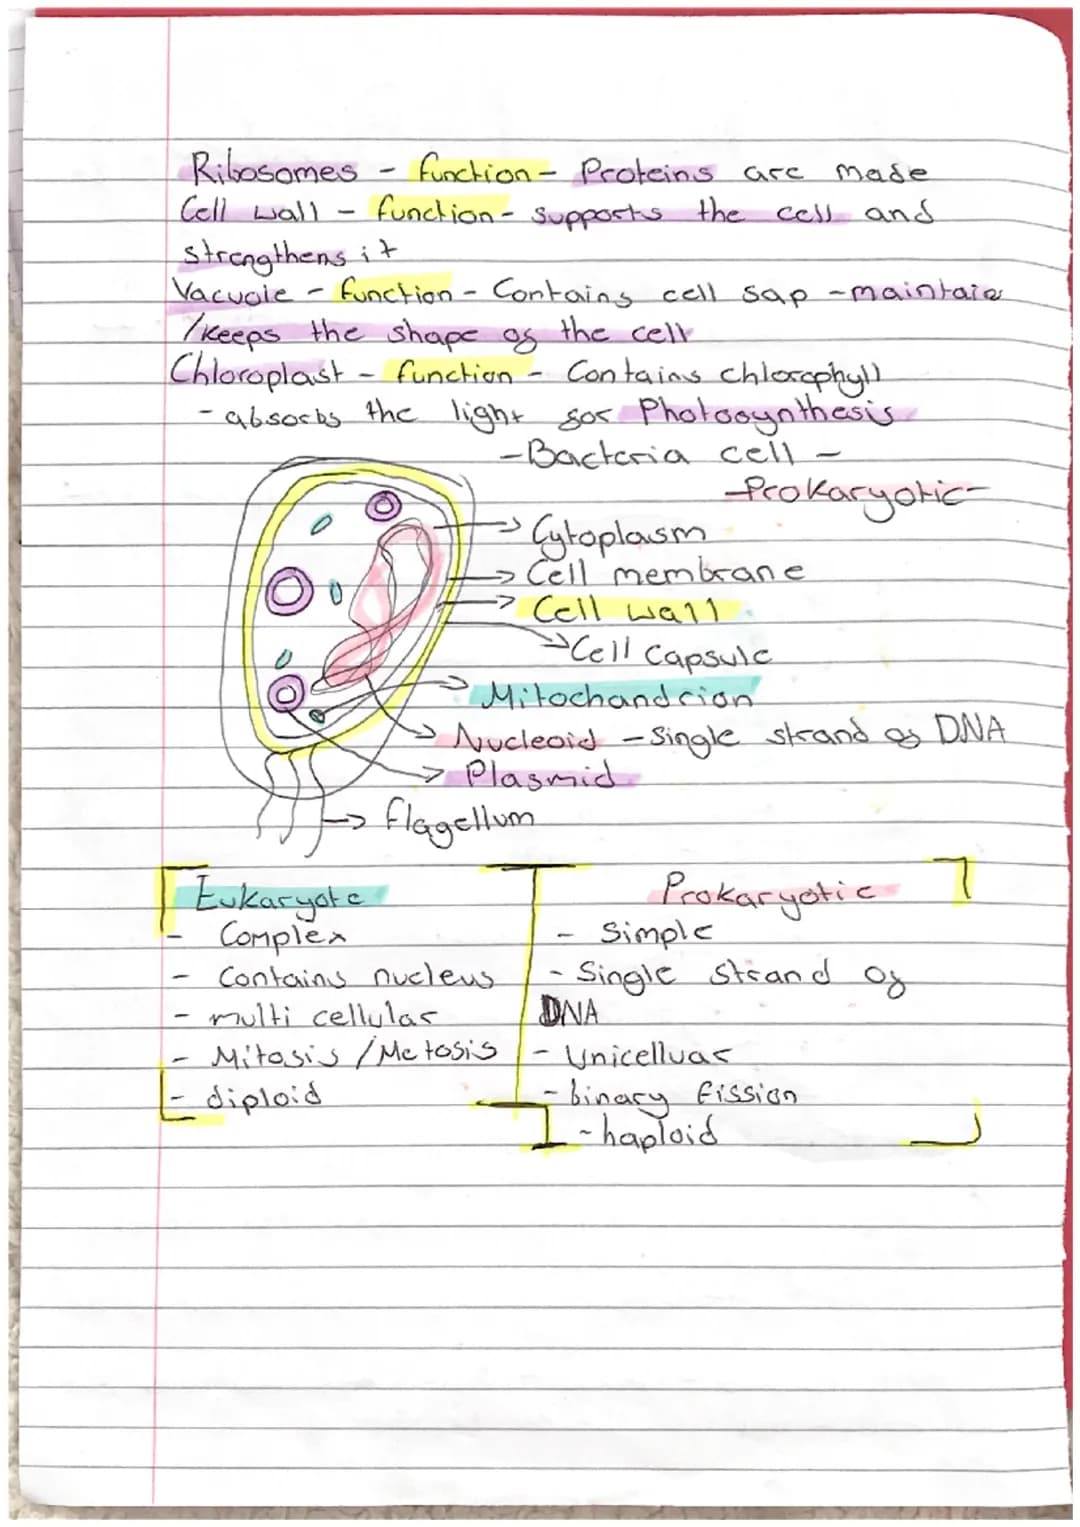 Ribosomes - function - Proteins are made
Cell wall - function - supports the cell and
strengthens it
Vacuole - function - Contains cell sap - maintain
/keeps the shape of the cell
Chloroplast - function - Contains chlorophyll
- absorbs the light for Photosynthesis
- Bacteria cell -
- Prokaryotic -
Cytoplasm
Cell membrane
Cell wall
Cell Capsule
Mitochondrion
Nucleoid - Single strand of DNA
Plasmid
flagellum
Eukaryote
- Complex
- Contains nucleus
- multi cellular
- Mitosis / Metosis
- diploid
Prokaryotic
- Simple
- Single strand of
DNA
- Unicelluar
- binary fission
- haploid